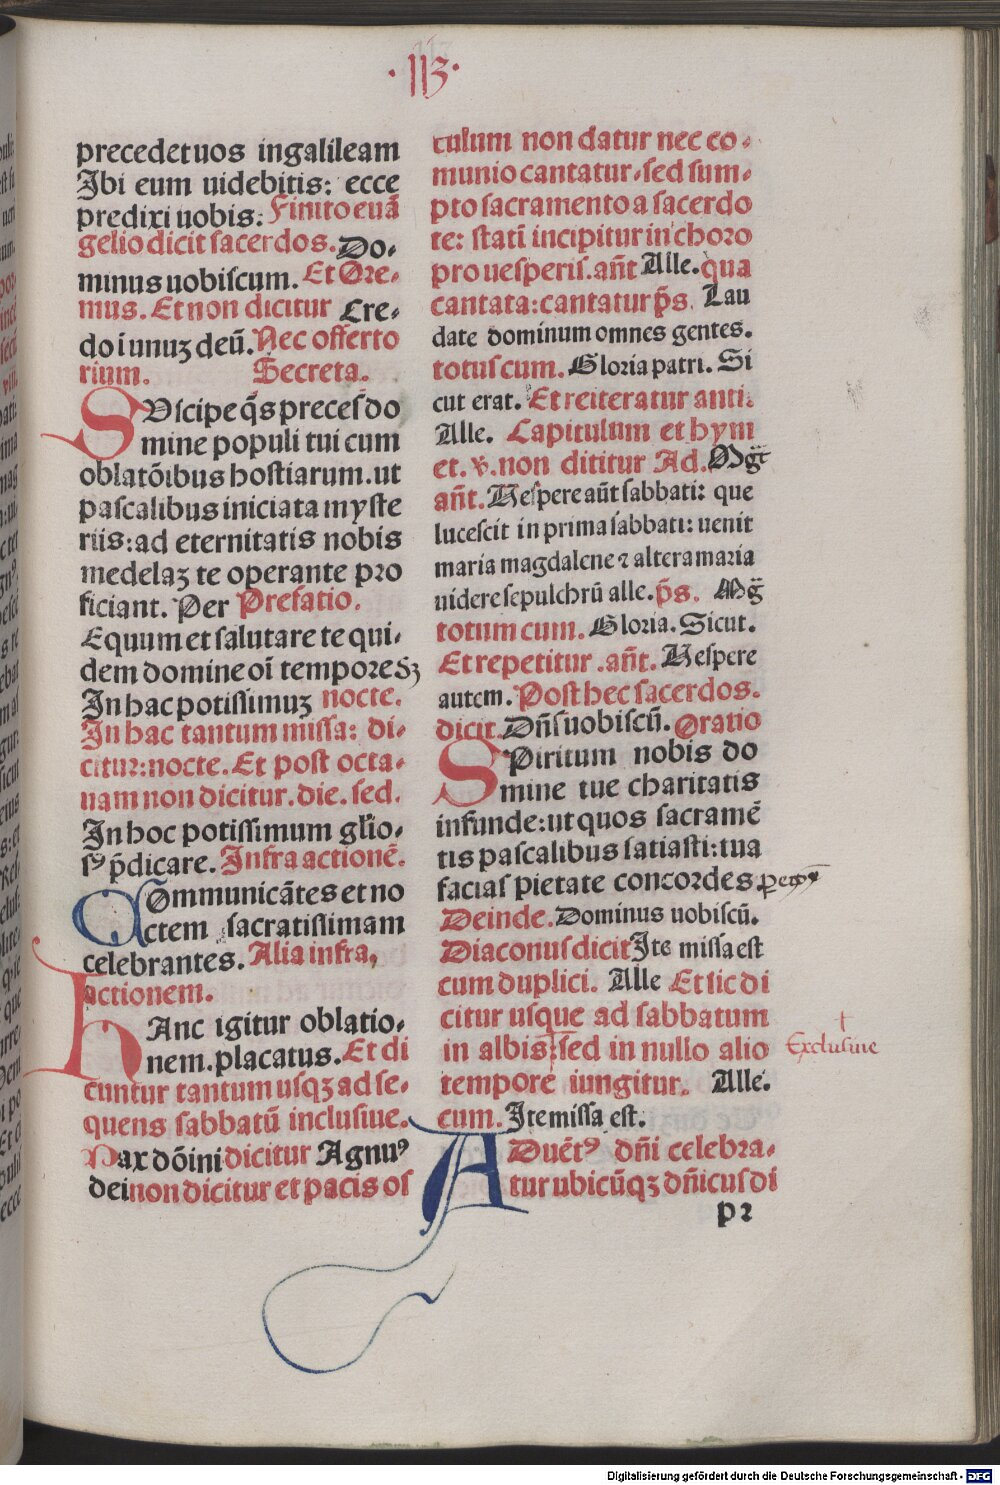 ·113·
precedetuos ingalileam
Ibi eum uidebitis: ecce
predixi uobis. Finito euā
gelio dicit sacerdos. Do-
minus uobiscum. Et Ore-
mus. Et non dicitur Cre-
do i unuꝫ deū. Nec offerto
rium. Secreta.
SUscipe q̄s preces do
mine populi tui cum
oblatōibus hostiarum. ut
pascalibus iniciata myste
riis: ad eternitatis nobis
medelaꝫ te operante pro
ficiant. Per Prefatio.
Equum et salutare te qui-
dem domine oī tempore sꝫ
In hac potissimuꝫ nocte.
In hac tantum missa: di-
citur: nocte. Et post octa-
uam non dicitur. die. sed.
In hoc potissimum glīo-
sꝰ p̄dicare. Infra actionē.
COmmunicātes et no
ctem sacratissimam
celebrantes. Alia infra,
actionem.
HAnc igitur oblatio-
nem. placatus. Et di
cuntur tantum usqꝫ ad se-
quens sabbatū inclusiue.
Pax dōini dicitur Agnuꝰ
dei non dicitur et pacis os
culum non datur nec co-
munio cantatur. sed sum-
pto sacramento a sacerdo
te: statī incipitur in choro
pro uesperis. añt Alle. qua
cantata: cantatur p̄s. Lau
date dominum omnes gentes.
totus cum. Gloria patri. Si
cut erat. Et reiteratur anti.
Alle. Capitulum et hym
et. v. non dititur Ad. Mgt̄
añt. Uespere aūt sabbati: que
lucescit in prima sabbati: uenit
maria magdalene ⁊ altera maria
uidere sepulchrū alle. p̄s. Mḡ
totum cum. Gloria. Sicut.
Et repetitur. añt. Uespere
autem. Post hec sacerdos.
dicit. Dñs uobiscū. Oratio
SPiritum nobis do
mine tue charitatis
infunde: ut quos sacramē
tis pascalibus satiasti: tua
facias pietate concordes.
Deinde. Dominus uobiscū.
Diaconus dicit Ite missa est
cum duplici. Alle Et sic di
citur usque ad sabbatum
in albis: sed in nullo alio
† Exclusiue
tempore iungitur. Alle.
cum. Ite missa est.
ADuētꝰ dñi celebra-
tur ubicūqꝫ dñicus di
pꝛ
Digitalisierung gefördert durch die Deutsche Forschungsgemeinschaft - DFG